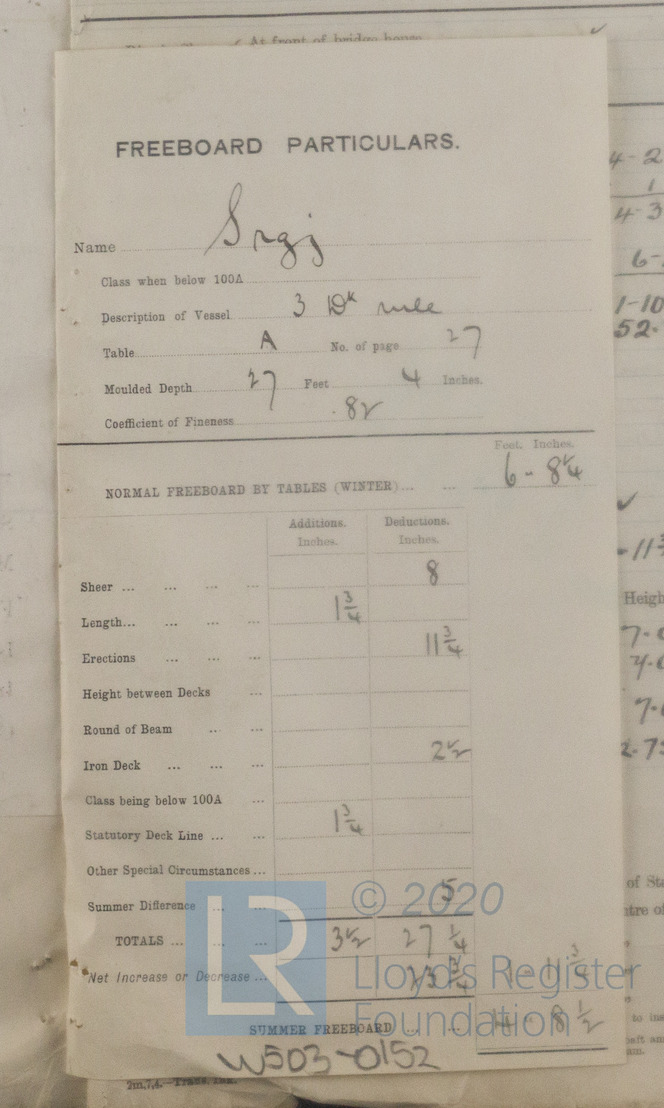 At front of bridge house
FREEBOARD PARTICULARS.
Name
Class when below 100A
Description of Vessel 3 Dk rule
Table A No. of page 27
Moulded Depth 27 Feet 4 Inches.
Coefficient of Fineness .82
Feet. Inches.
NORMAL FREEBOARD BY TABLES (WINTER)... ... 6 - 8 1/4
Additions. Deductions.
Inches. Inches.
Sheer ... ... ... ... 8
Length... ... ... ... 1 3/4
Erections ... ... ... 11 3/4
Height between Decks ...
Round of Beam ... ...
Iron Deck ... ... ... 2 1/2
Class being below 100A ...
Statutory Deck Line ... ... 1 3/4
Other Special Circumstances...
Summer Difference ... ... 5
TOTALS ... ... ... 3 1/2 27 1/4
Net Increase or Decrease ... 23 3/4 1 - 11 3/4
SUMMER FREEBOARD ... ... 4 - 8 1/2
W503-0152
© 2020
LR
Lloyd's Register
Foundation
4-2
1
4-3
1-10
Heigh